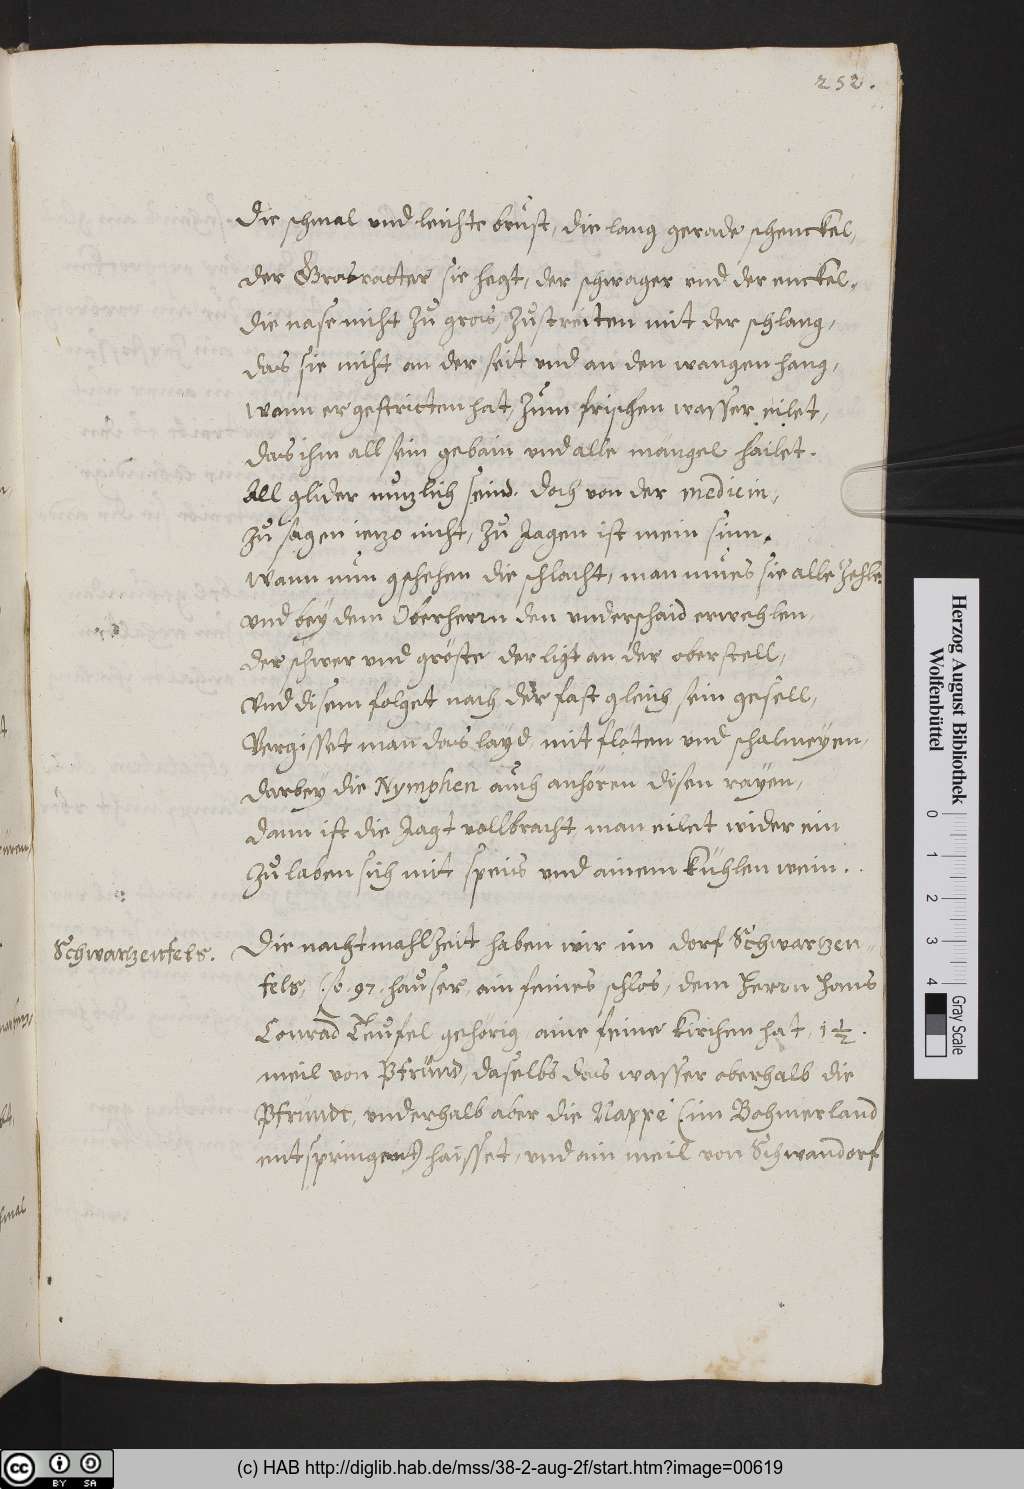 252.
Die schmal und leichte brüst, die lang gerade schenckel,
der Grosvatter sie hegt, der schwager und der enckel,
die nase nicht zů gros, zůstreiten mit der schlang,
das sie nicht an der seit und an den wangen hang,
Wann er gestritten hat, zům frischen wasser eilet,
das ihm all sein gebain und alle mängel hailet.
All glider nutzlich seind. doch von der medicin,
zů sagen ietzo nicht, zů Jagen ist mein sinn.
Wann nůn gschehen die schlacht, man můes sie alle zehle
und bey dem Oberherrn den underschaid erwehlen,
der schwer und gröste der ligt an der oberstell,
Und disem folget nach der fast gleich sein gesell,
Vergisset man das layd, mit flöten und schalmeyen,
darbey die Nymphen aůch anhören disen rayen,
dann ist die Jagt vollbracht, man eilet wider ein
zů laben sich mit speis und ainem kühlen wein.
Schwartzenfels.
Die nachtmahlzeit haben wir im dorf Schwartzen-
fels, so 97. haůser, ain feines schlos, dem Herrn Hans
Conrad Teůfel gehörig, aine feine kirchen hat, 1½.
meil von Pfründ, daselbs das wasser oberhalb die
Pfründt, underhalb aber die Nappe (im Bohmerland
entspringent) haisset, und ain meil von Schwandorf
Herzog August Bibliothek
Wolfenbüttel
0 1 2 3 4
Gray Scale
cc BY SA
(c) HAB http://diglib.hab.de/mss/38-2-aug-2f/start.htm?image=00619